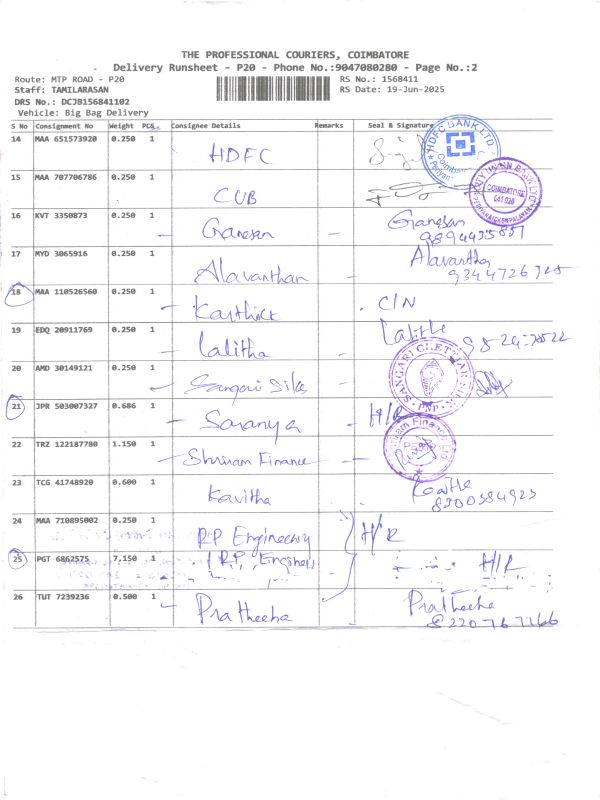 THE PROFESSIONAL COURIERS, COIMBATORE
Delivery Runsheet - P20 - Phone No.:9047080280 - Page No.:2
Route: MTP ROAD - P20 RS No.: 1568411
Staff: TAMILARASAN RS Date: 19-Jun-2025
DRS No.: DCJB156841102
Vehicle: Big Bag Delivery
S No Consignment No Weight PCS Consignee Details Remarks Seal & Signature
14 MAA 651573920 0.250 1 HDFC HDFC BANK LTD
15 MAA 707706786 0.250 1 CUB COIMBATORE 641 020
16 KVT 3350873 0.250 1 Ganesan Ganesan
17 MYD 3065916 0.250 1 Alavanthan
18 MAA 110526560 0.250 1 Karthick C/N
19 EDQ 20911769 0.250 1 Lalitha
20 AMD 30149121 0.250 1
21 JPR 503007327 0.686 1 Saranya H/R
22 TRZ 122187780 1.150 1 Shriram Finance
23 TCG 41748920 0.600 1 Kavitha
24 MAA 710895002 0.250 1 R.P Engineering H/R
25 PGT 6862575 7.150 1 R.P. H/R
26 TUT 7239236 0.500 1 Pratheeba Pratheeba